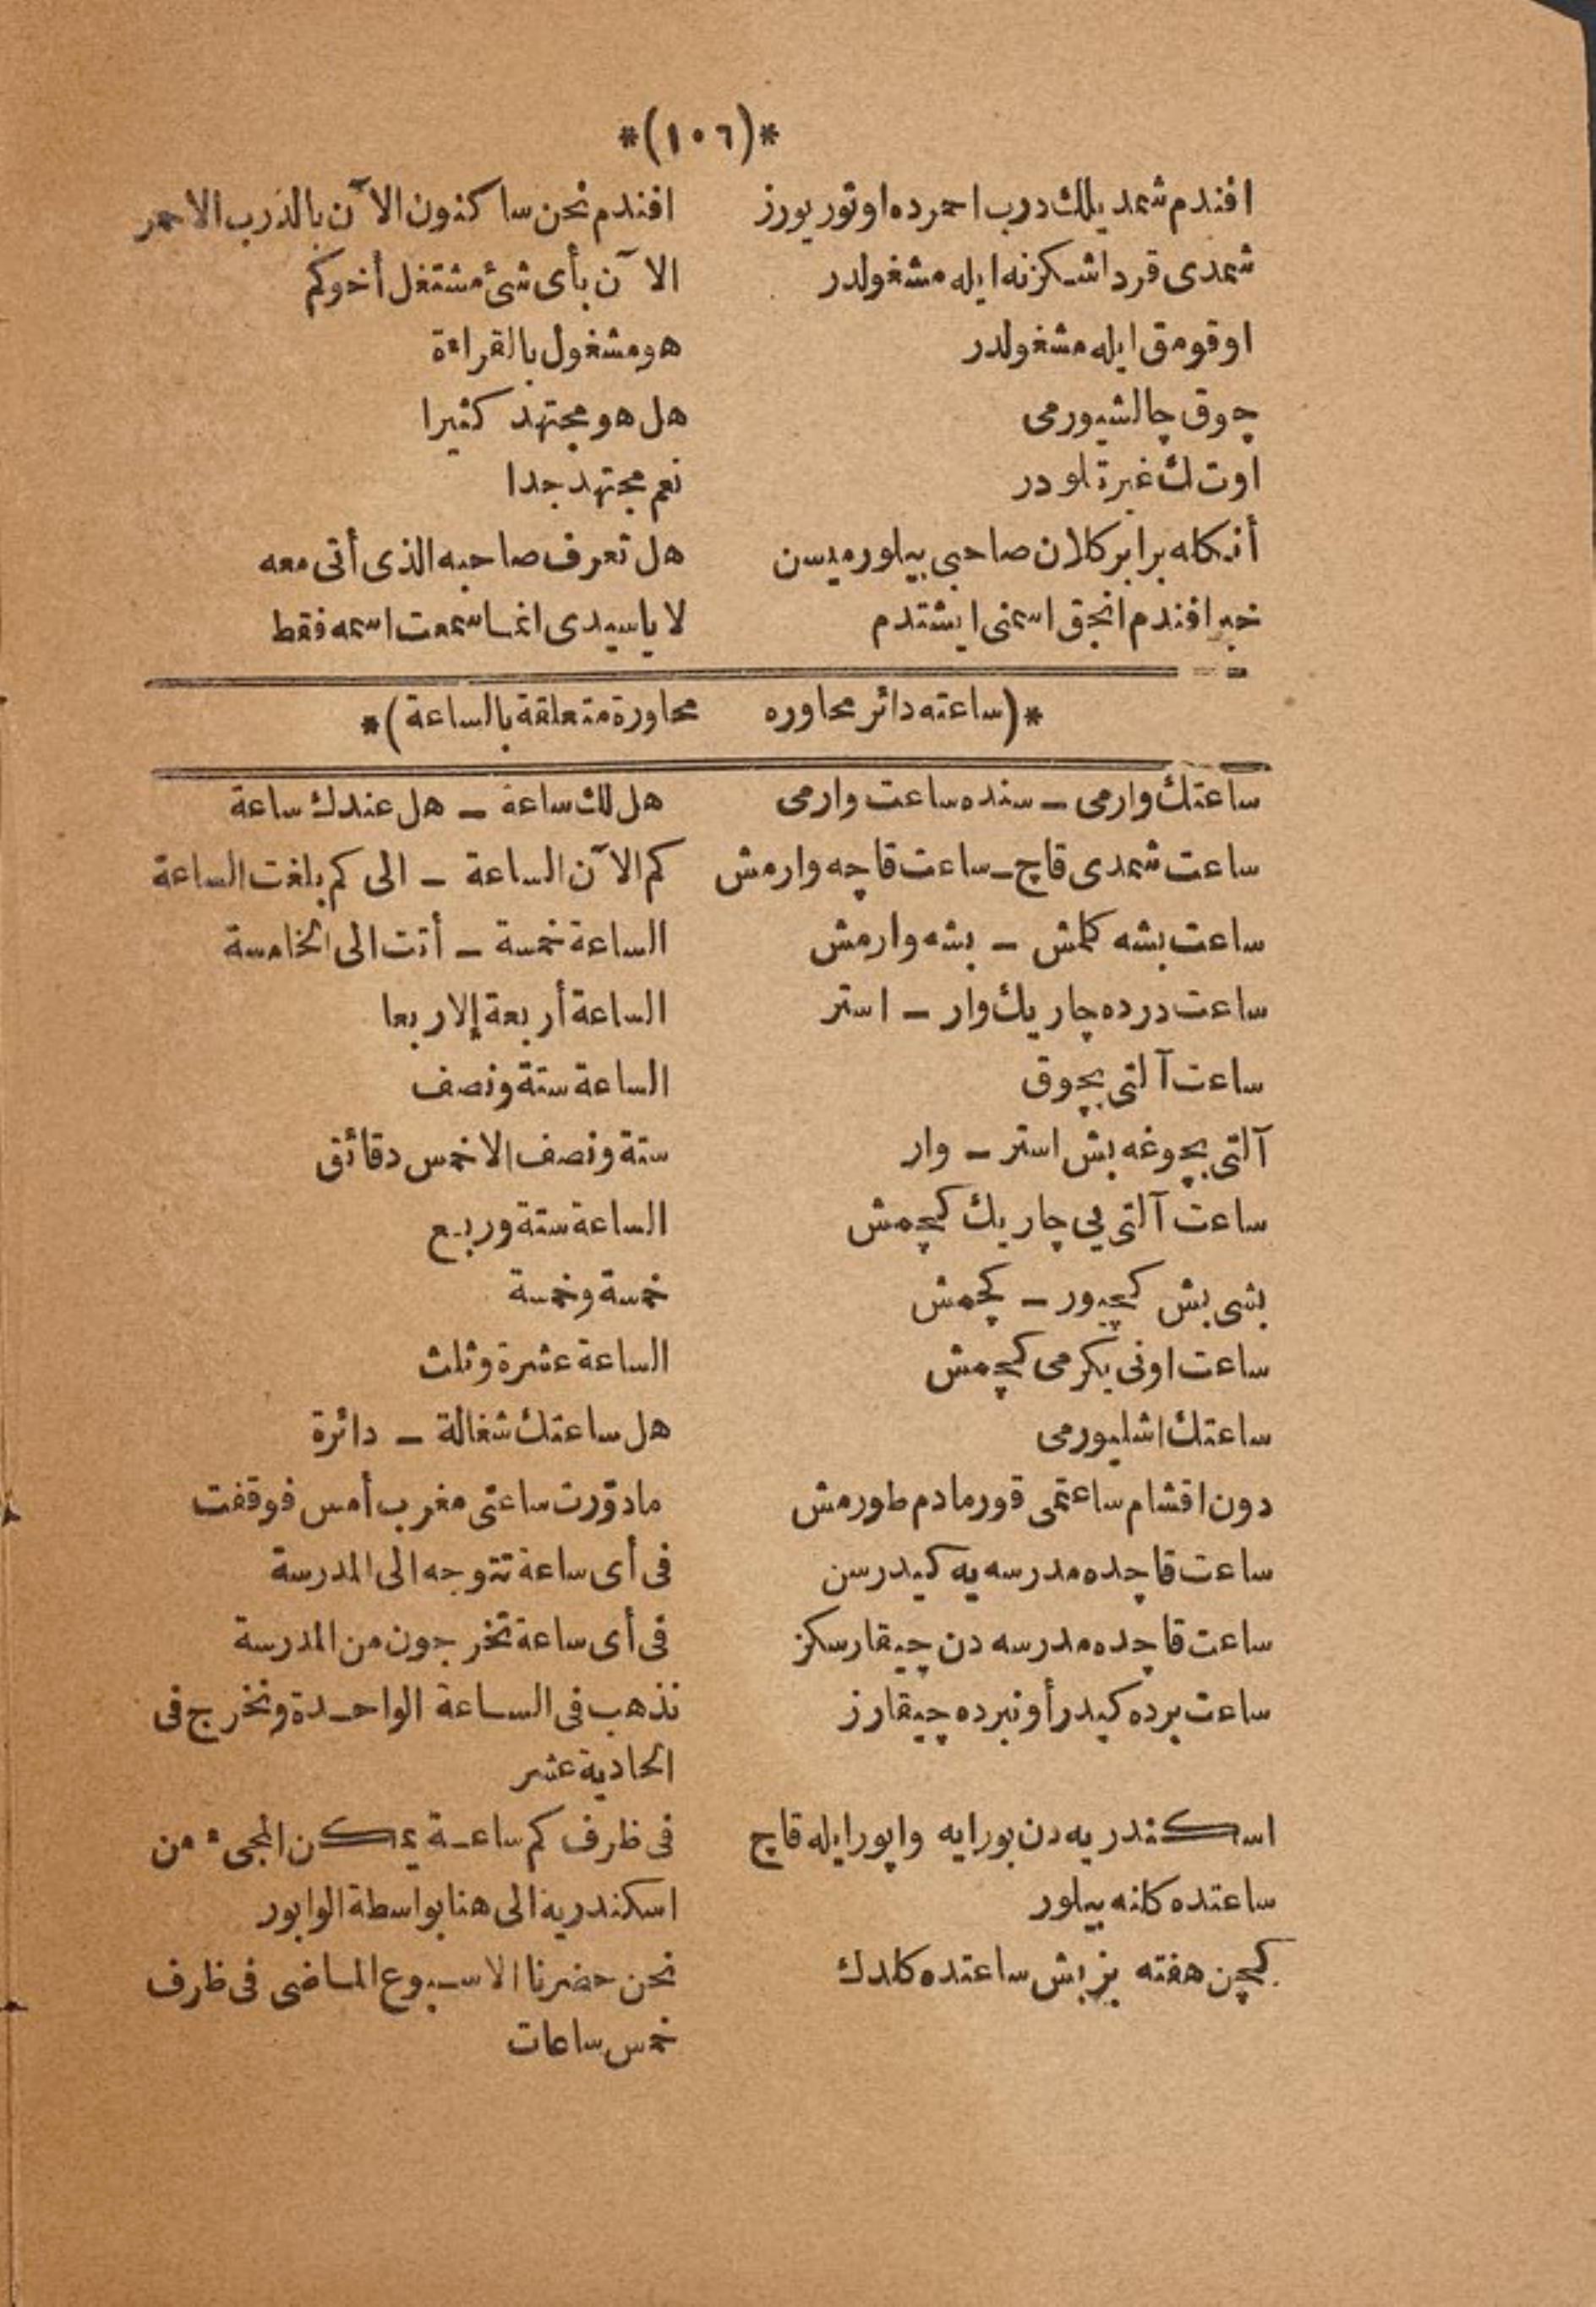 *(١٠٦)*
افندم شمديلك درب احمرده اوتوريورز افندم نحن ساكنون الآن بالدرب الاحمر
شمدی قرداشكزنه ايله مشغولدر الآن بأی شئ مشتغل أخوكم
اوقومق ايله مشغولدر هو مشغول بالقراءة
چوق چالشيورمی هل هو مجتهد كثيرا
اوت لك غيرتلودر نعم مجتهد جدا
أنكله برابر كلان صاحبی بيلورميسن هل تعرف صاحبه الذی أتی معه
خير افندم انجق اسمنی ايشتدم لا ياسيدی انما سمعت اسمه فقط
*(ساعته دائر محاوره محاورة متعلقة بالساعة)*
ساعتك وارمی ـ سنده ساعت وارمی هل لك ساعة ـ هل عندك ساعة
ساعت شمدی قاچ ـ ساعت قاچه وارمش كم الآن الساعة ـ الی كم بلغت الساعة
ساعت بشه كلمش ـ بشه وارمش الساعة خمسة ـ أتت الی الخامسة
ساعت درده چاريك وار ـ استر الساعة أربعة إلا ربعا
ساعت آلتی بچوق الساعة ستة ونصف
آلتی بچوغه بش استر ـ وار ستة ونصف الا خمس دقائق
ساعت آلتی يی چاريك كچمش الساعة ستة وربع
بشی بش كچيور ـ كچمش خمسة وخمسة
ساعت اونی يكرمی كچمش الساعة عشرة وثلث
ساعتك اشليورمی هل ساعتك شغالة ـ دائرة
دون اقشام ساعتمی قورمادم طورمش مادوّرت ساعتی مغرب أمس فوقفت
ساعت قاچده مدرسه يه كيدرسن فی أی ساعة تتوجه الی المدرسة
ساعت قاچده مدرسه دن چيقارسكز فی أی ساعة تخرجون من المدرسة
ساعت برده كيدر أونبرده چيقارز نذهب فی الساعة الواحدة ونخرج فی
الحادية عشر
اسكندريه دن بورايه واپور ايله قاچ فی ظرف كم ساعة يمكن المجیء من
ساعتده كلنه بيلور اسكندرية الی هنا بواسطة الوابور
كچن هفته بز بش ساعتده كلدك نحن حضرنا الاسبوع الماضی فی ظرف
خمس ساعات